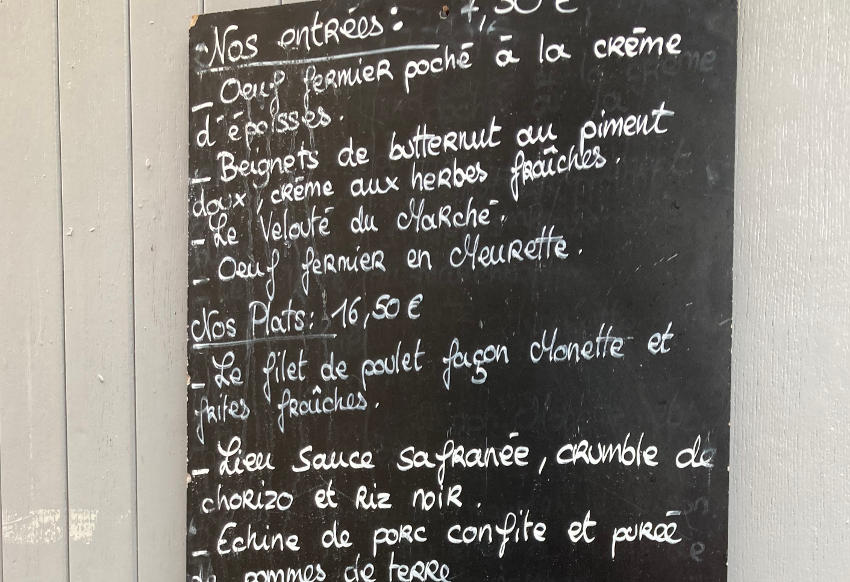 Nos entrées : 7,50 €
- Oeuf fermier poché à la crème
d'époisses.
- Beignets de butternut au piment
doux, crème aux herbes fraîches.
- Le Velouté du Marché.
- Oeuf fermier en Meurette.
Nos Plats : 16,50 €
- Le filet de poulet façon Monette et
frites fraîches.
- Lieu sauce safranée, crumble de
chorizo et riz noir.
- Echine de porc confite et purée
de pommes de terre